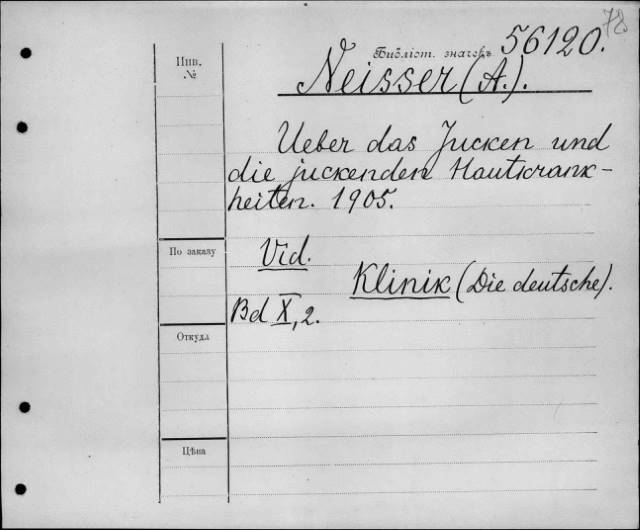 78
Библіот. значекъ 56120.
Инв.
№
Neisser (A.).
Ueber das Jucken und
die juckenden Hautkrank-
heiten. 1905.
По заказу
Vid.
Klinik (Die deutsche).
Bd X, 2.
Откуда
Цѣна